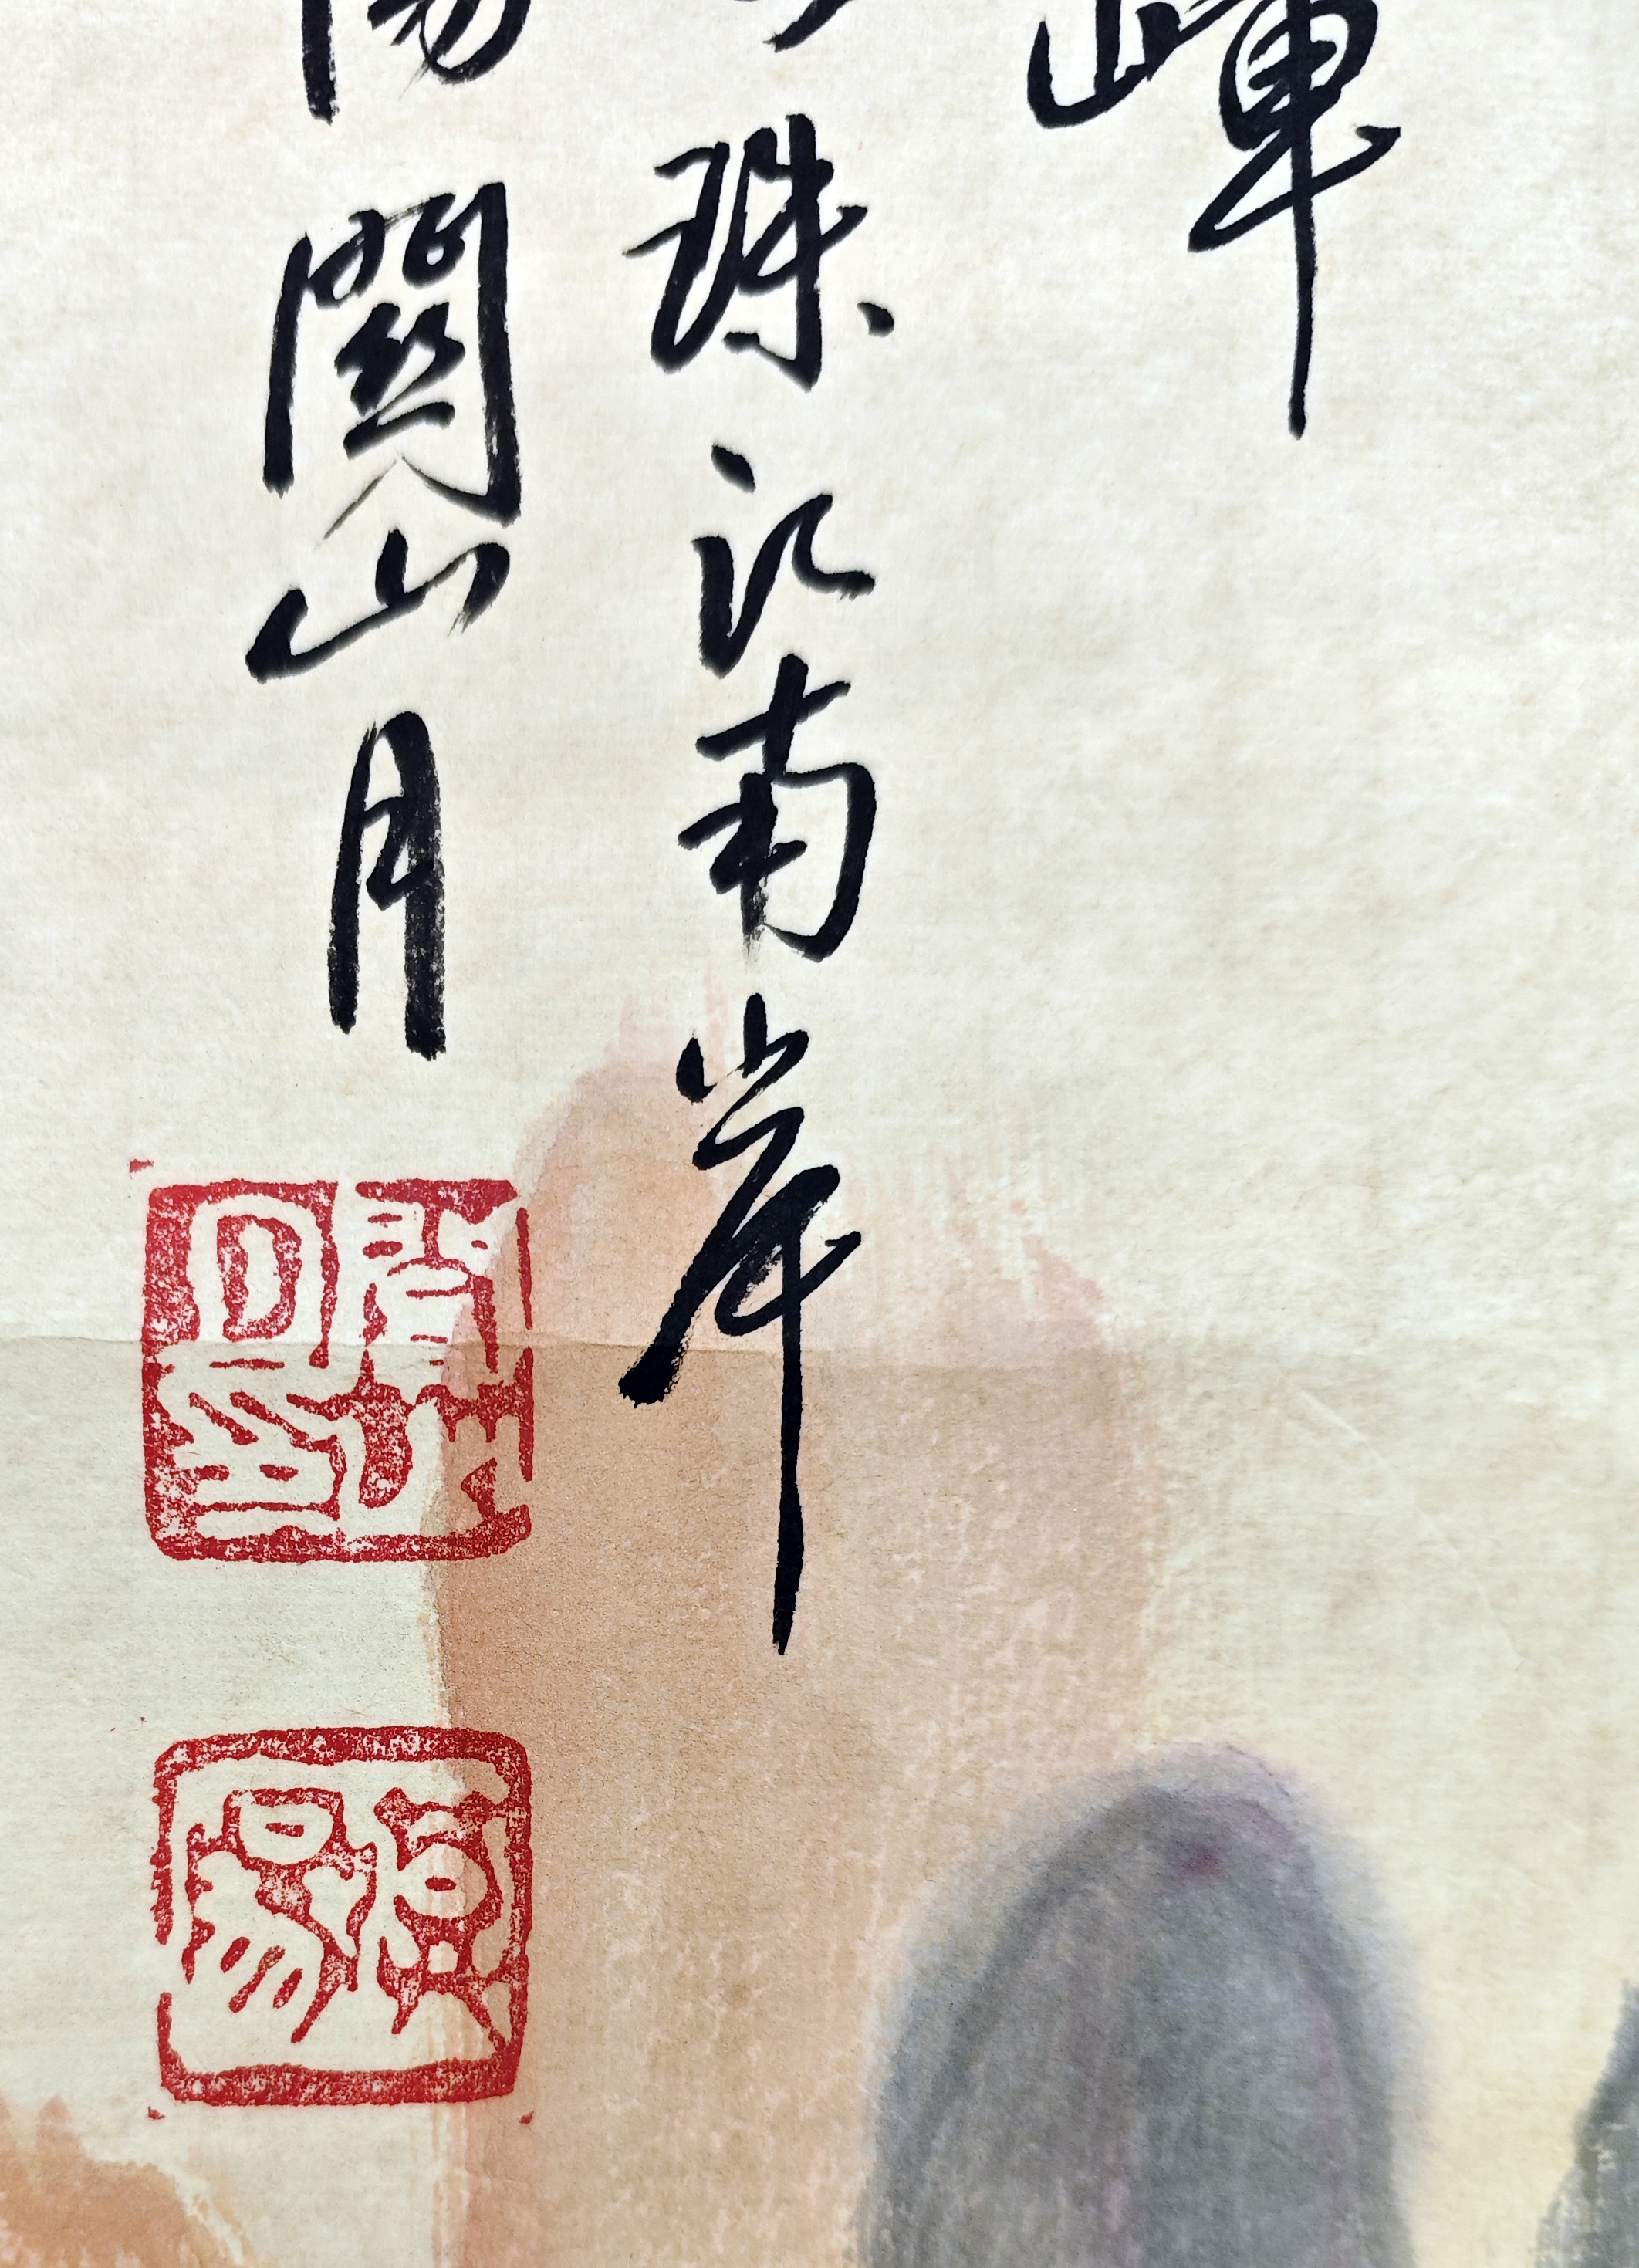 輝
珠江南岸
陽關山月
關山月印